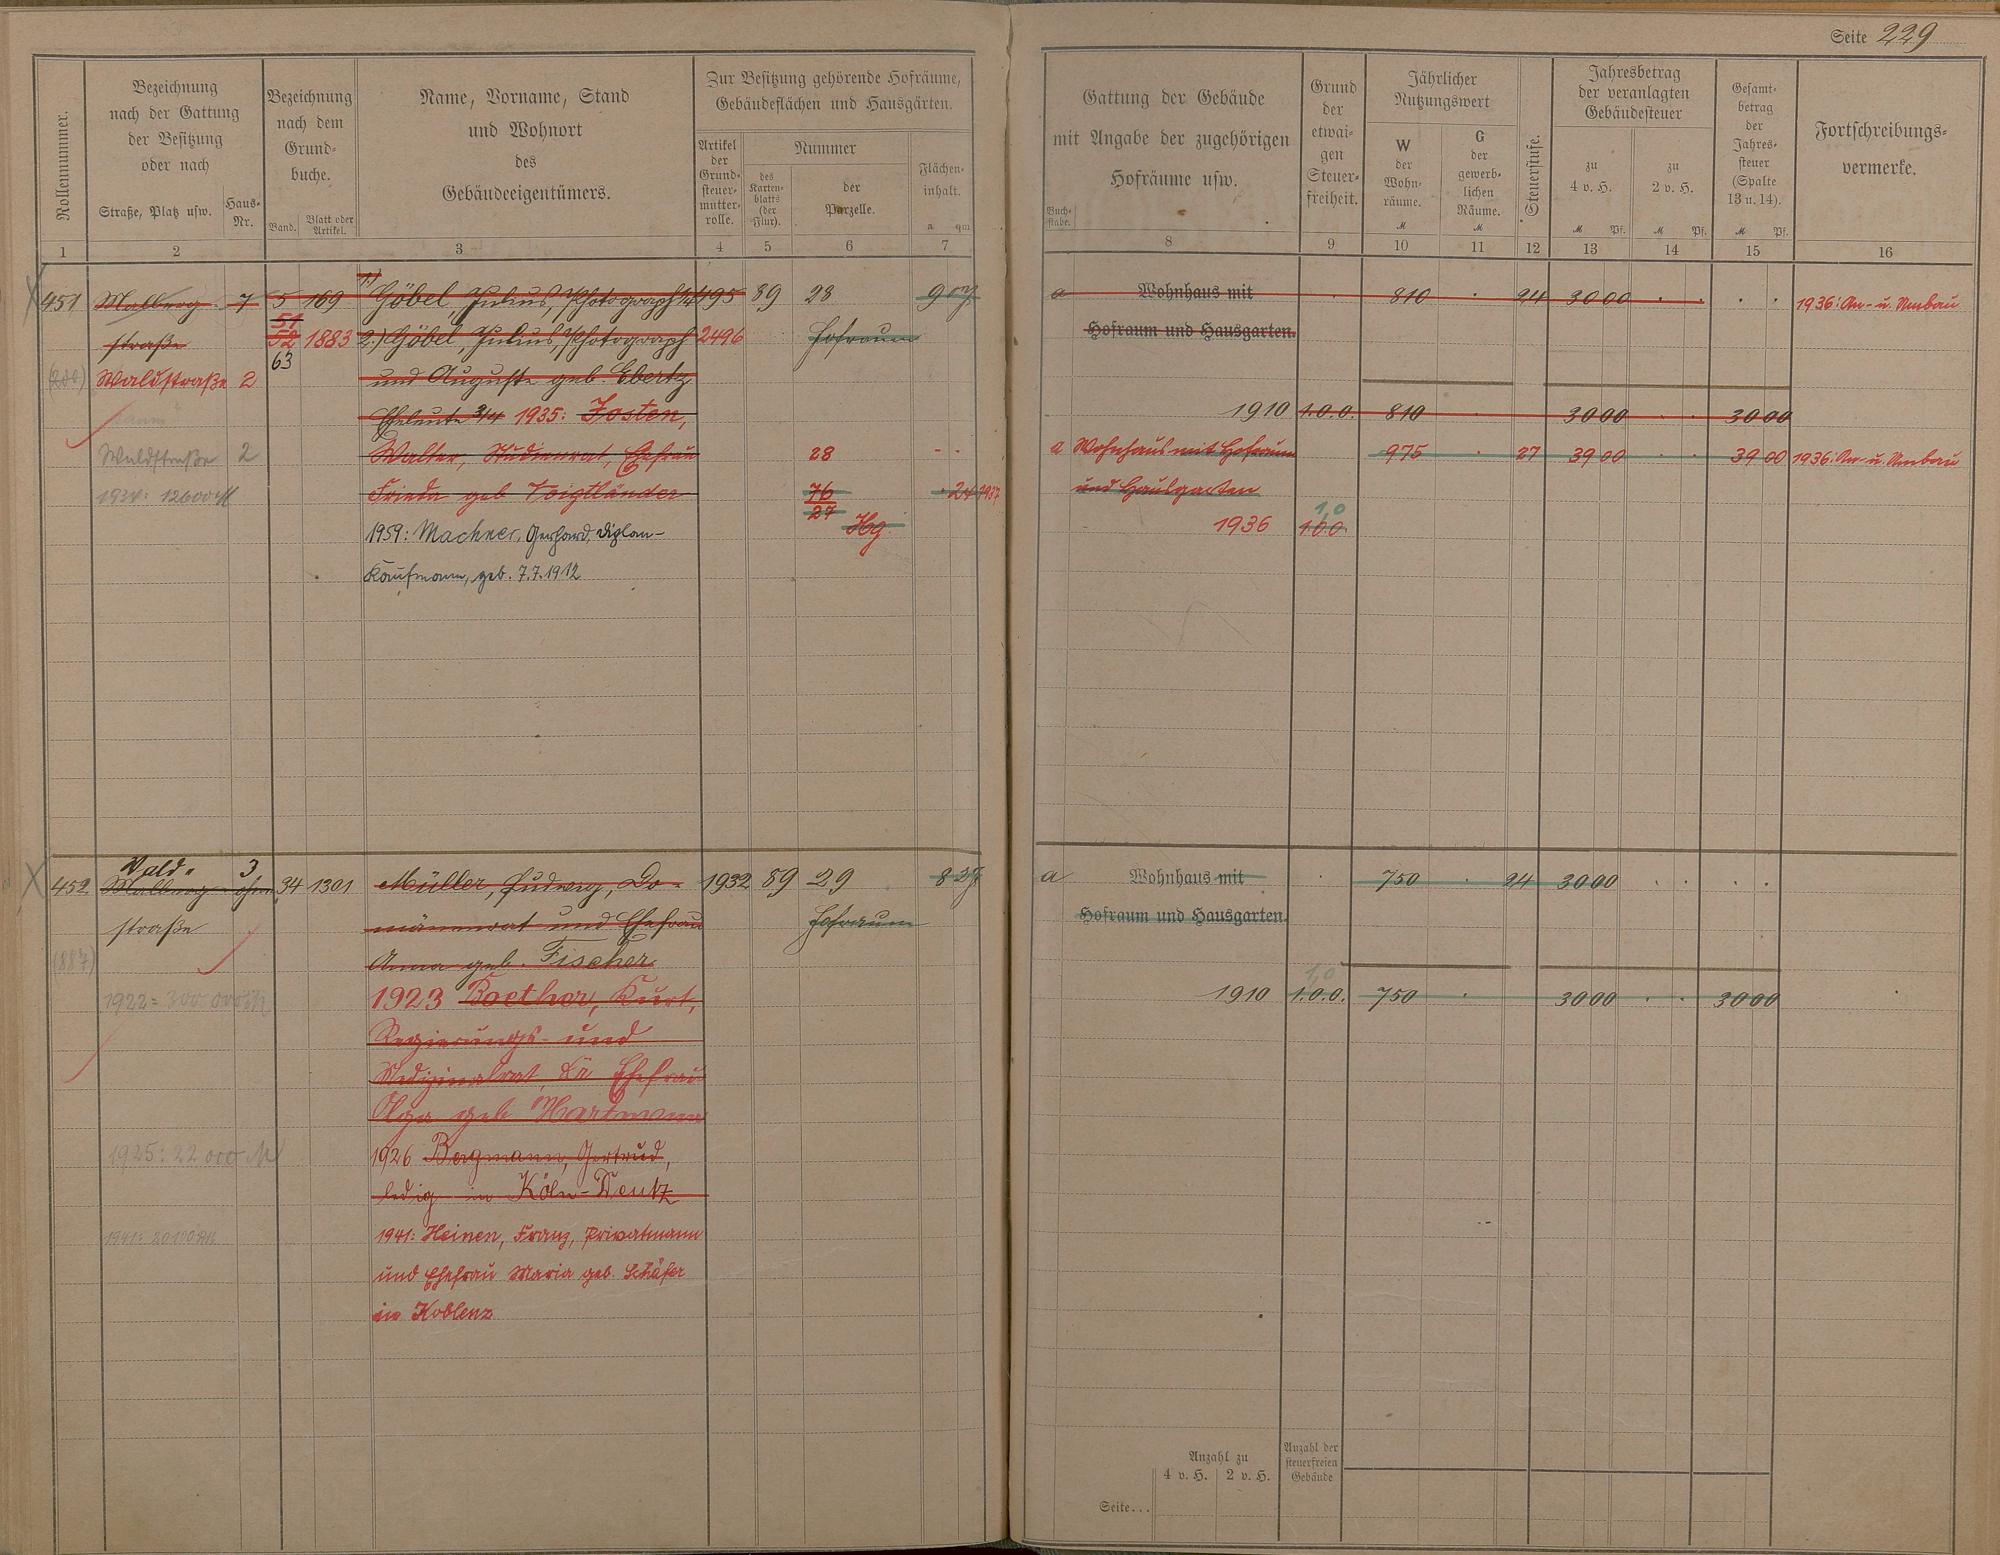 Seite 229
Rollennummer.
Bezeichnung
nach der Gattung
der Besitzung
oder nach
Straße, Platz usw.
Haus-
Nr.
Bezeichnung
nach dem
Grund-
buche.
Band.
Blatt oder
Artikel.
Name, Vorname, Stand
und Wohnort
des
Gebäudeeigentümers.
Zur Besitzung gehörende Hofräume,
Gebäudeflächen und Hausgärten.
Artikel
der
Grund-
steuer-
mutter-
rolle.
Nummer
des
Karten-
blatts
(der
Flur).
der
Parzelle.
Flächen-
inhalt.
a qm
Gattung der Gebäude
mit Angabe der zugehörigen
Hofräume usw.
Buch-
stabe.
Grund
der
etwai-
gen
Steuer-
freiheit.
Jährlicher
Nutzungswert
W
der
Wohn-
räume.
M
G
der
gewerb-
lichen
Räume.
M
Steuerstufe.
Jahresbetrag
der veranlagten
Gebäudesteuer
zu
4 v. H.
M Pf.
zu
2 v. H.
M Pf.
Gesamt-
betrag
der
Jahres-
steuer
(Spalte
13 u. 14).
M Pf.
Fortschreibungs-
vermerke.
1 2 3 4 5 6 7 8 9 10 11 12 13 14 15 16
451 Malberg- 7 5 169 1) Göbel, Julius, Photograph 89 28 a Wohnhaus mit 810 24 30 00 1936: An- u. Umbau
51
straße 52 1883 2.) Göbel, Julius, Photograph 2496 Hofraum Hofraum und Hausgarten.
63
Waldstraße 2 und Auguste geb. Ebertz
Eheleute 1935: Josten, 1910 1.0.0. 810 30 00 30 00
Waldstraße 2 Walter, Studienrat, Ehefrau 28 a Wohnhaus mit Hofraum 975 27 39 00 39 00 1936: An- u. Umbau
12600 M Frieda geb Voigtländer 76 24 1937 und Hausgarten
27 Hg 1,0
1959: Machner, Gerhard, Diplom- 1936 1.0.0
Kaufmann, geb. 7.7.1912
Wald- 3
452 Malberg- 34 1301 Müller, Ludwig, Do- 1932 89 29 a Wohnhaus mit 750 24 30 00
straße mänenrat und Ehefrau Hofraum Hofraum und Hausgarten.
(887) Anna geb. Fischer
1,0
1922= 300 000 M 1923 Boether, Kurt, 1910 1.0.0. 750 30 00 30 00
Regierungs- und
Medizinalrat, Ehefrau
Olga geb Hartmann
1925: 22 000 M 1926 Bergmann, Gertrud,
ledig in Köln-Deutz
1941: 1941: Heinen, Franz, Privatmann
und Ehefrau Maria geb. Schäfer
in Koblenz
Anzahl zu
4 v. H. 2 v. H.
Anzahl der
steuerfreien
Gebäude
Seite...